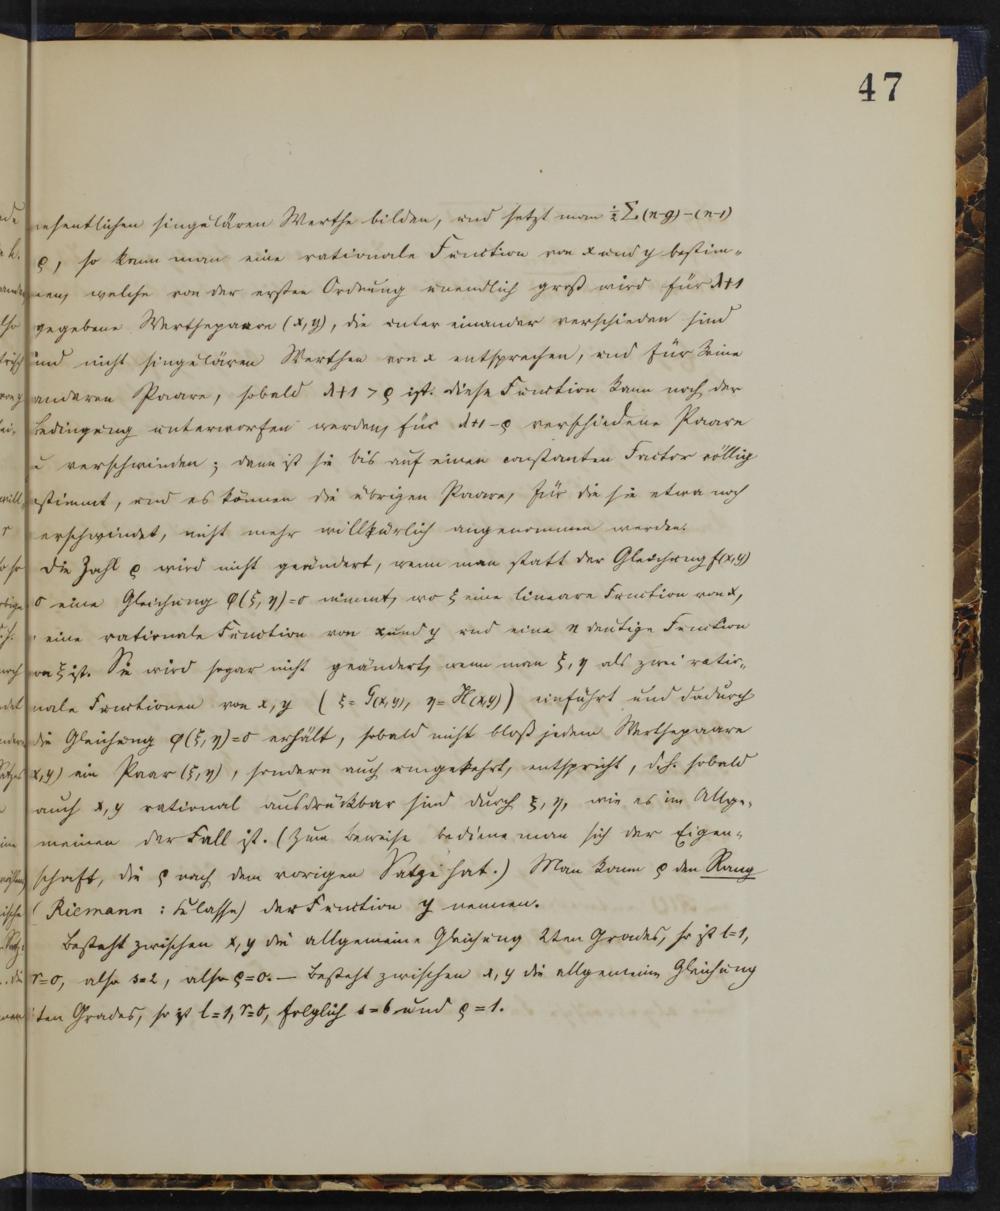 47
wesentlichen singulären Werthe bilden, und setzt man ½ Σ (n-g) - (n-1)
ϱ, so kann man eine rationale Function von x und y bestim-
men, welche von der ersten Ordnung unendlich groß wird für λ+1
gegebene Werthepaare (x, y), die unter einander verschieden sind
und nicht singulären Werthen von x entsprechen, und für keine
anderen Paare, sobald λ+1 > ϱ ist. Diese Function kann noch der
Bedingung unterworfen werden, für λ+1-ϱ verschiedene Paare
zu verschwinden; dann ist sie bis auf einen constanten Factor völlig
bestimmt, und es können die übrigen Paare, für die sie etwa noch
verschwindet, nicht mehr willkürlich angenommen werden.
Die Zahl ϱ wird nicht geändert, wenn man statt der Gleichung f(x,y)
0 eine Gleichung φ(ξ, η)=0 nimmt, wo ξ eine lineare Function von x,
η eine rationale Function von x und y und eine n deutige Function
von ξ ist. Sie wird sogar nicht geändert, wenn man ξ, η als zwei ratio-
nale Functionen von x, y (ξ = G(x,y), η = H(x,y)) einführt und dadurch
die Gleichung φ(ξ, η)=0 erhält, sobald nicht bloß jedem Werthepaare
x, y) ein Paar (ξ, η), sondern auch umgekehrt, entspricht, d.h. sobald
auch x, y rational ausdrückbar sind durch ξ, η, wie es im Allge-
meinen der Fall ist. (Zum Beweise bediene man sich der Eigen-
schaft, die ϱ nach dem vorigen Satze hat.) Man kann ϱ den Rang
(Riemann: Classe) der Function y nennen.
Besteht zwischen x, y die allgemeine Gleichung 2ten Grades, so ist l=1,
r=0, also s=2, also ϱ=0. — Besteht zwischen x, y die allgemeine Gleichung
ten Grades, so ist l=1, r=0, folglich s=6 und ϱ=1.